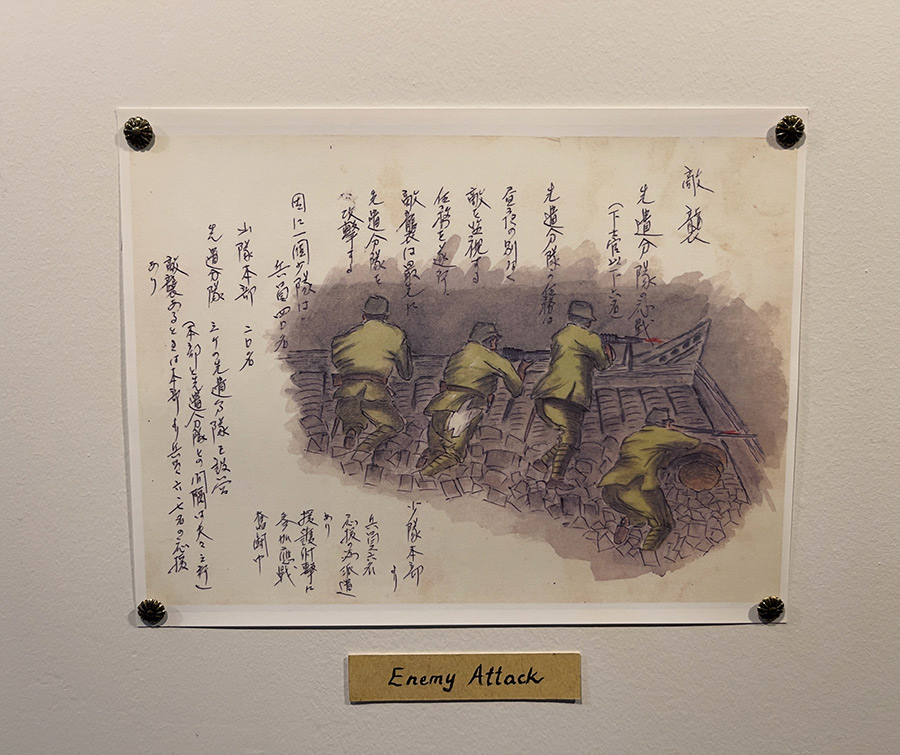 敵襲
先遣分隊の応戦
(下士官以下六名)
先遣分隊の任務は
昼夜の別なく
敵を監視する
任務を遂行
敵襲は最先に
先遣分隊を
攻撃する
因に一個小隊は
兵員四〇名
小隊本部 二〇名
先遣分隊 三ケの先遣分隊を設営
(本部と先遣分隊との間隔は夫々
敵襲あるときは本部より兵員六、七名の応援
あり
小隊本部
より
兵員六名
応援の為派遣
あり
援護射撃に
参加応戦
奮闘中
Enemy Attack